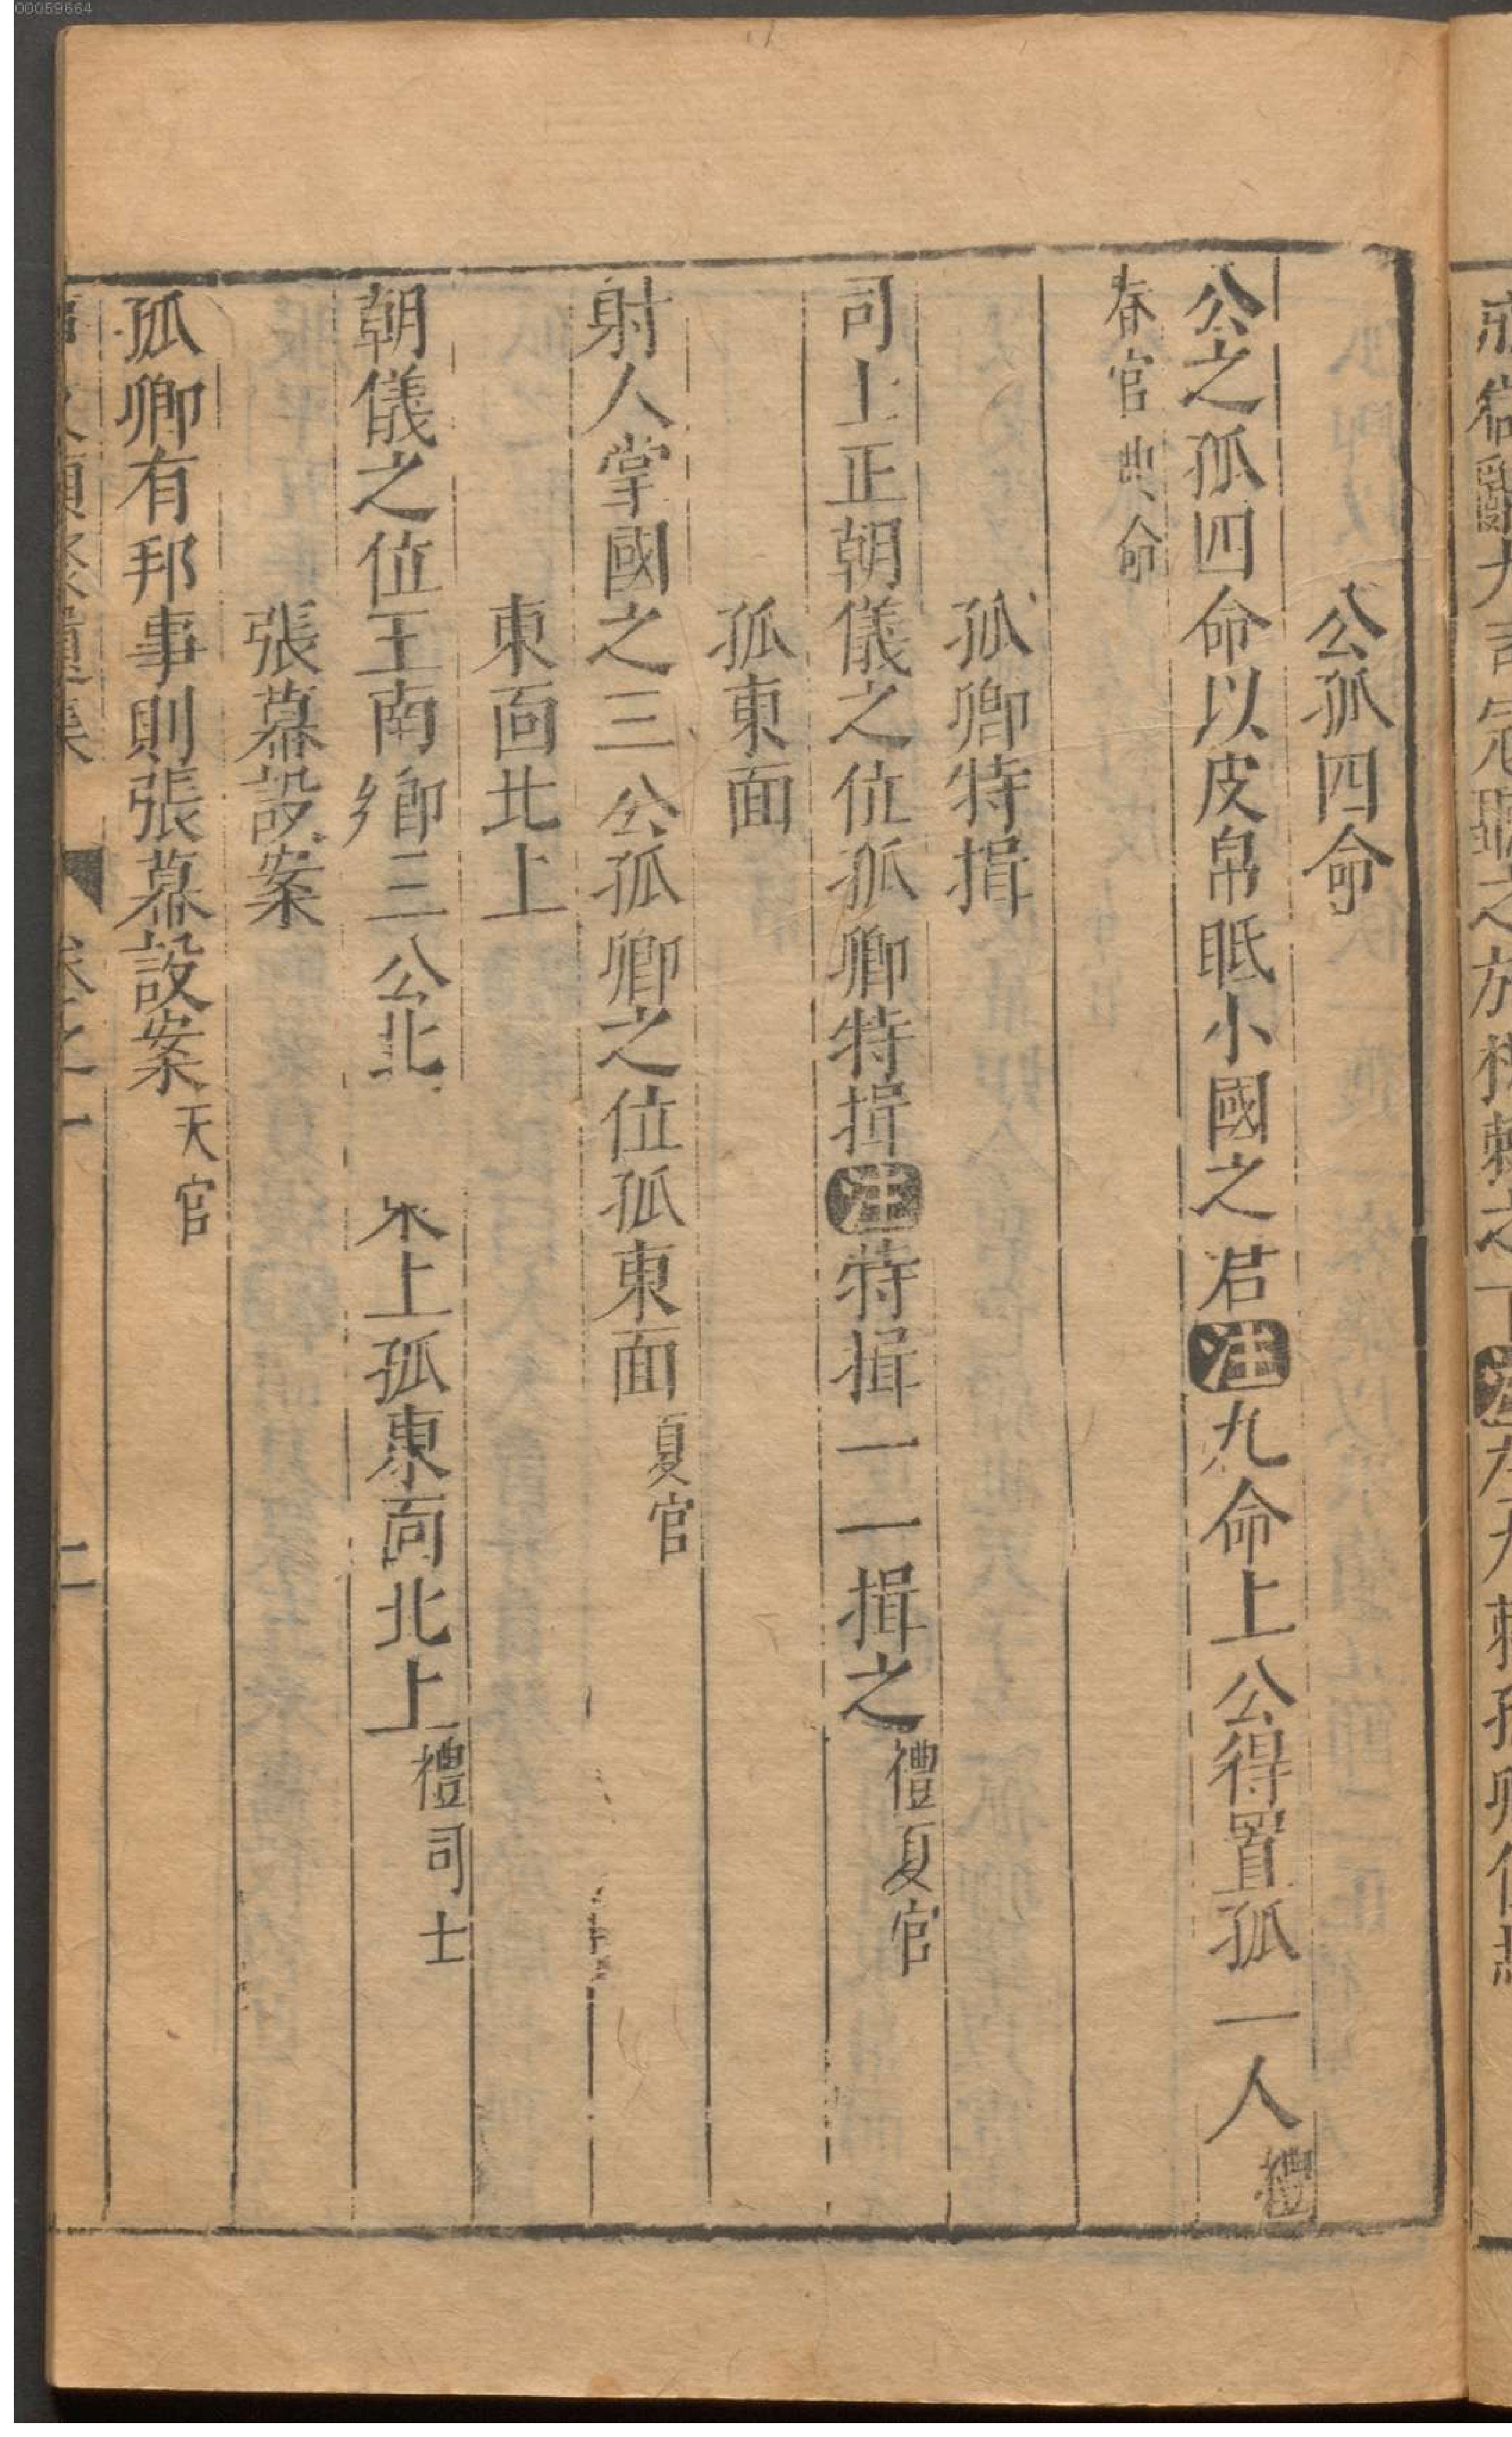 00059664
公孤四命
公之孤四命以皮帛眡小國之君注九命上公得置孤一人禮
春官典命
孤卿特揖
司士正朝儀之位孤卿特揖注特揖一一揖之禮夏官
孤東面
射人掌國之三公孤卿之位孤東面夏官
東面北上
朝儀之位王南鄉三公北上孤東面北上禮司士
張幕設案
孤卿有邦事則張幕設案天官
卷之一 二